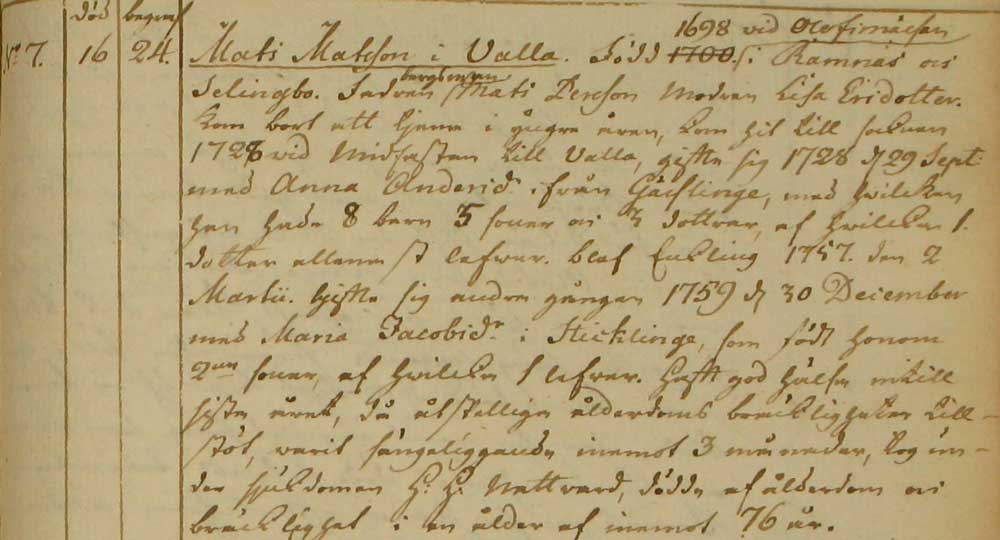 död begraf
1698 vid Olofsmässan
No 7. 16 24. Mats Matsson i Valla. Född 1700. i Ramnäs och
Selingbo. Fadren bergsman Mats Person Modren Lisa Ersdotter.
kom bort att tjena i yngre åren, kom hit till soknen
1728 vid Midfastan till Valla, gifte sig 1728 d 29 Sept:
med Anna Andersdr. ifrån Gäcklinge, med hvilken
han hade 8 barn 5 söner och 3 döttrar, af hvilka 1.
dotter allenast lefver. blef Enkling 1757. den 2
Martii. Gifte sig andra gången 1759 d 30 December
med Maria Jacobsdr i Hicklinge, som födt honom
2ne söner, af hvilka 1 lefver. Haft god hälsa intill
sista året, då åtskilliga ålderdoms bräckligheter till-
stöt, varit sängeliggande inemot 3 månader, tog un-
der sjukdomen H. H. Nattvard, dödde af ålderdom och
bräcklighet i en ålder af inemot 76 år.